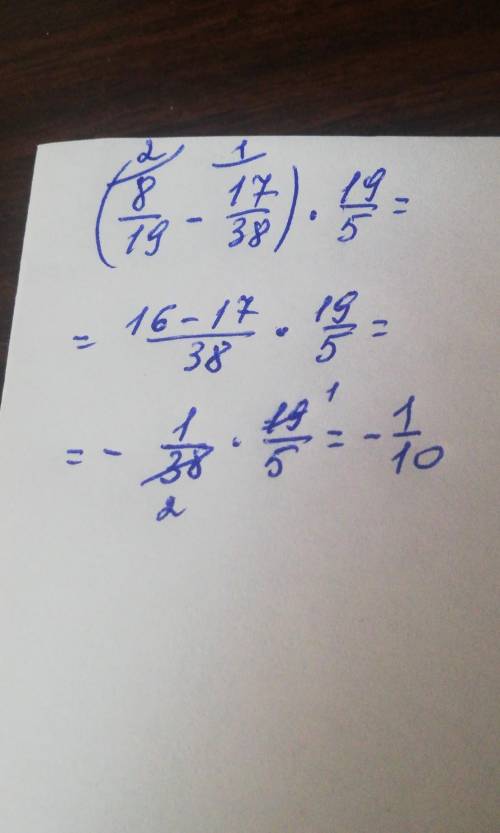 2 1
(8/19 - 17/38) · 19/5 =
= 16 - 17/38 · 19/5 =
= - 1/38 · 19/5 = - 1/10
2 1